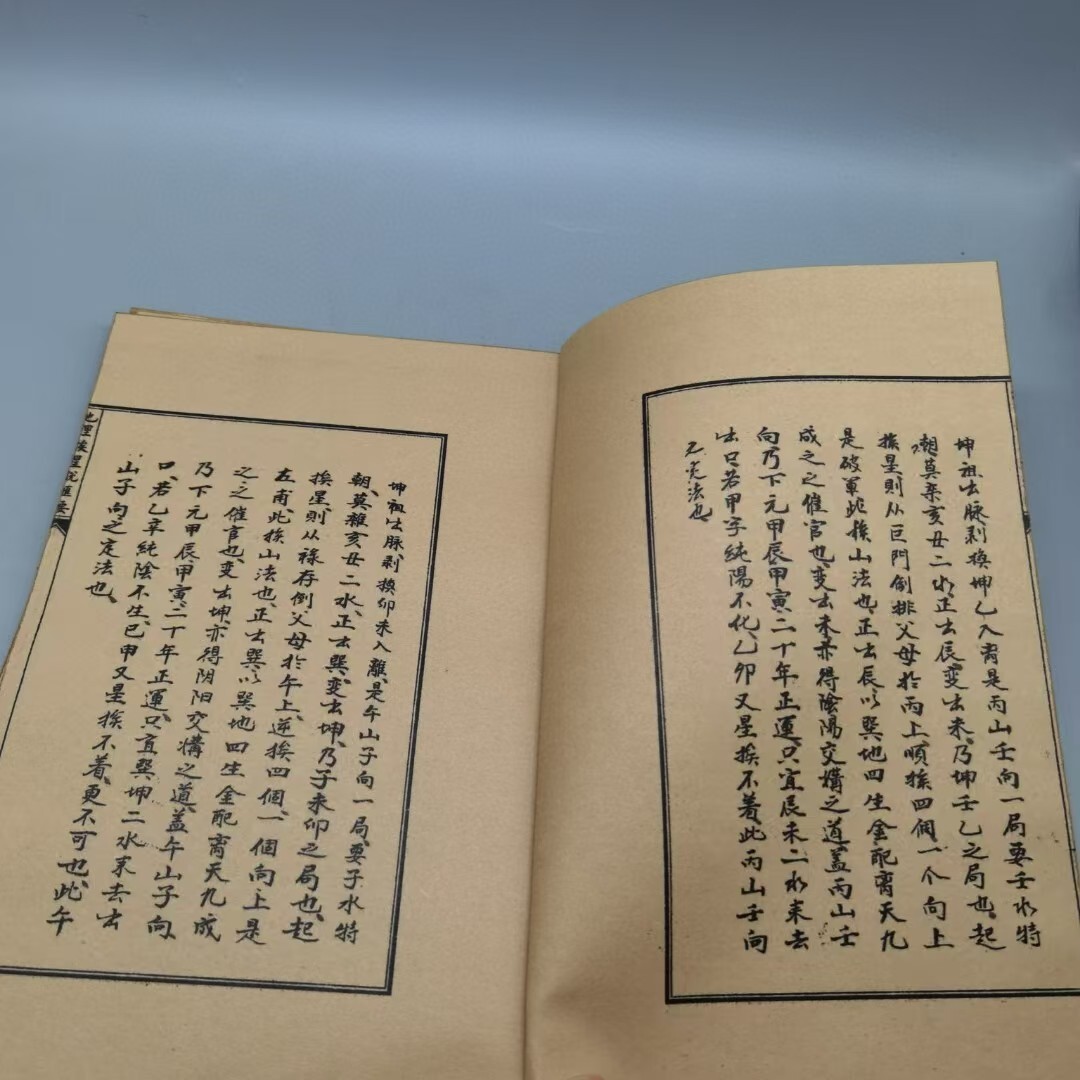 坤祖出脉剥换坤乙入离是丙山壬向一局要壬水特
朝莫杂亥丑二水正出辰变出未乃坤壬乙之局也起
挨星则从巨門倒排父母於丙上順挨四個一个向上
是破軍此挨山法也正出辰以巽地四生金配离天九
成之之催官也变出未亦得陰陽交媾之道盖丙山壬
向乃下元甲辰甲寅二十年正運只宜辰未二水来去
出只若甲字純陽不化乙卯又星挨不着此丙山壬向
之定法也
坤祖出脉剥换卯未入離是午山子向一局要子水特
朝莫雜亥丑二水正出巽变出坤乃子未卯之局也起
挨星則從祿存倒父母於午上逆挨四個一個向上是
左甫此挨山法也正出巽以巽地四生金配离天九成
之之催官也变出坤亦得阴阳交媾之道盖午山子向
乃下元甲辰甲寅二十年正運只宜巽坤二水来去出
口若乙辛純陰不生巳甲又星挨不着更不可也此午
山子向之定法也
地理挨星說